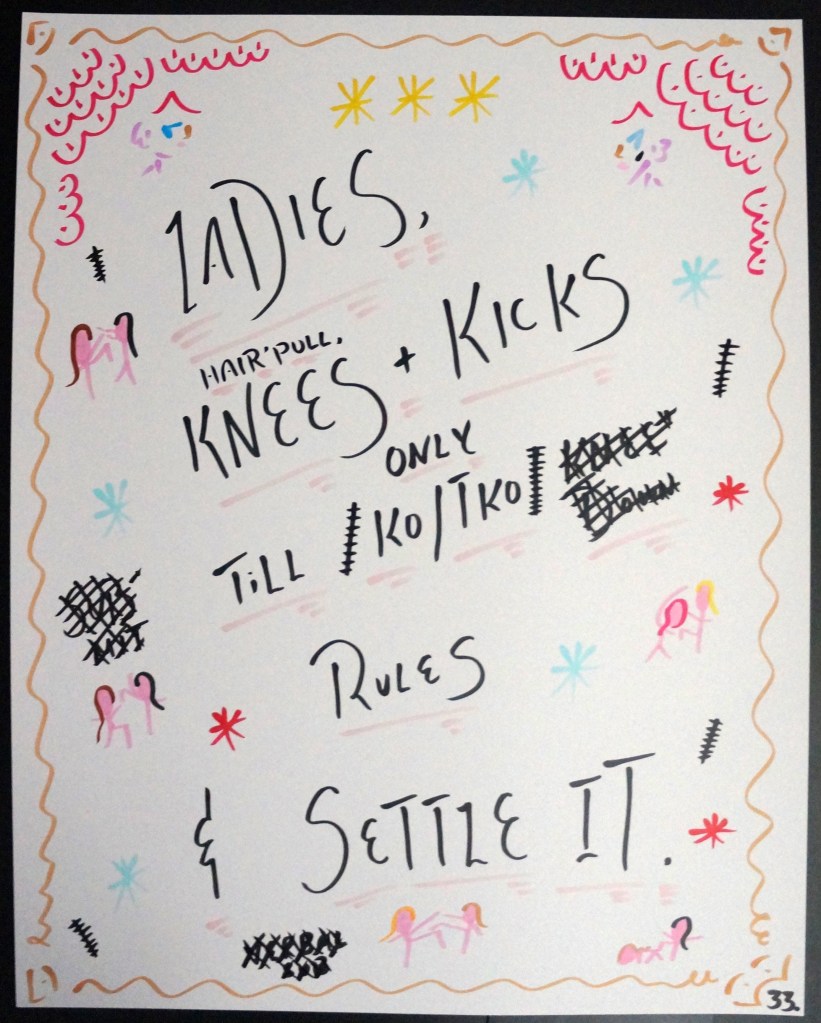 LADIES,
HAIR'PULL,
KNEES + KICKS
ONLY
TiLL KO/TKO
RULES
& SETTLE IT.
33.